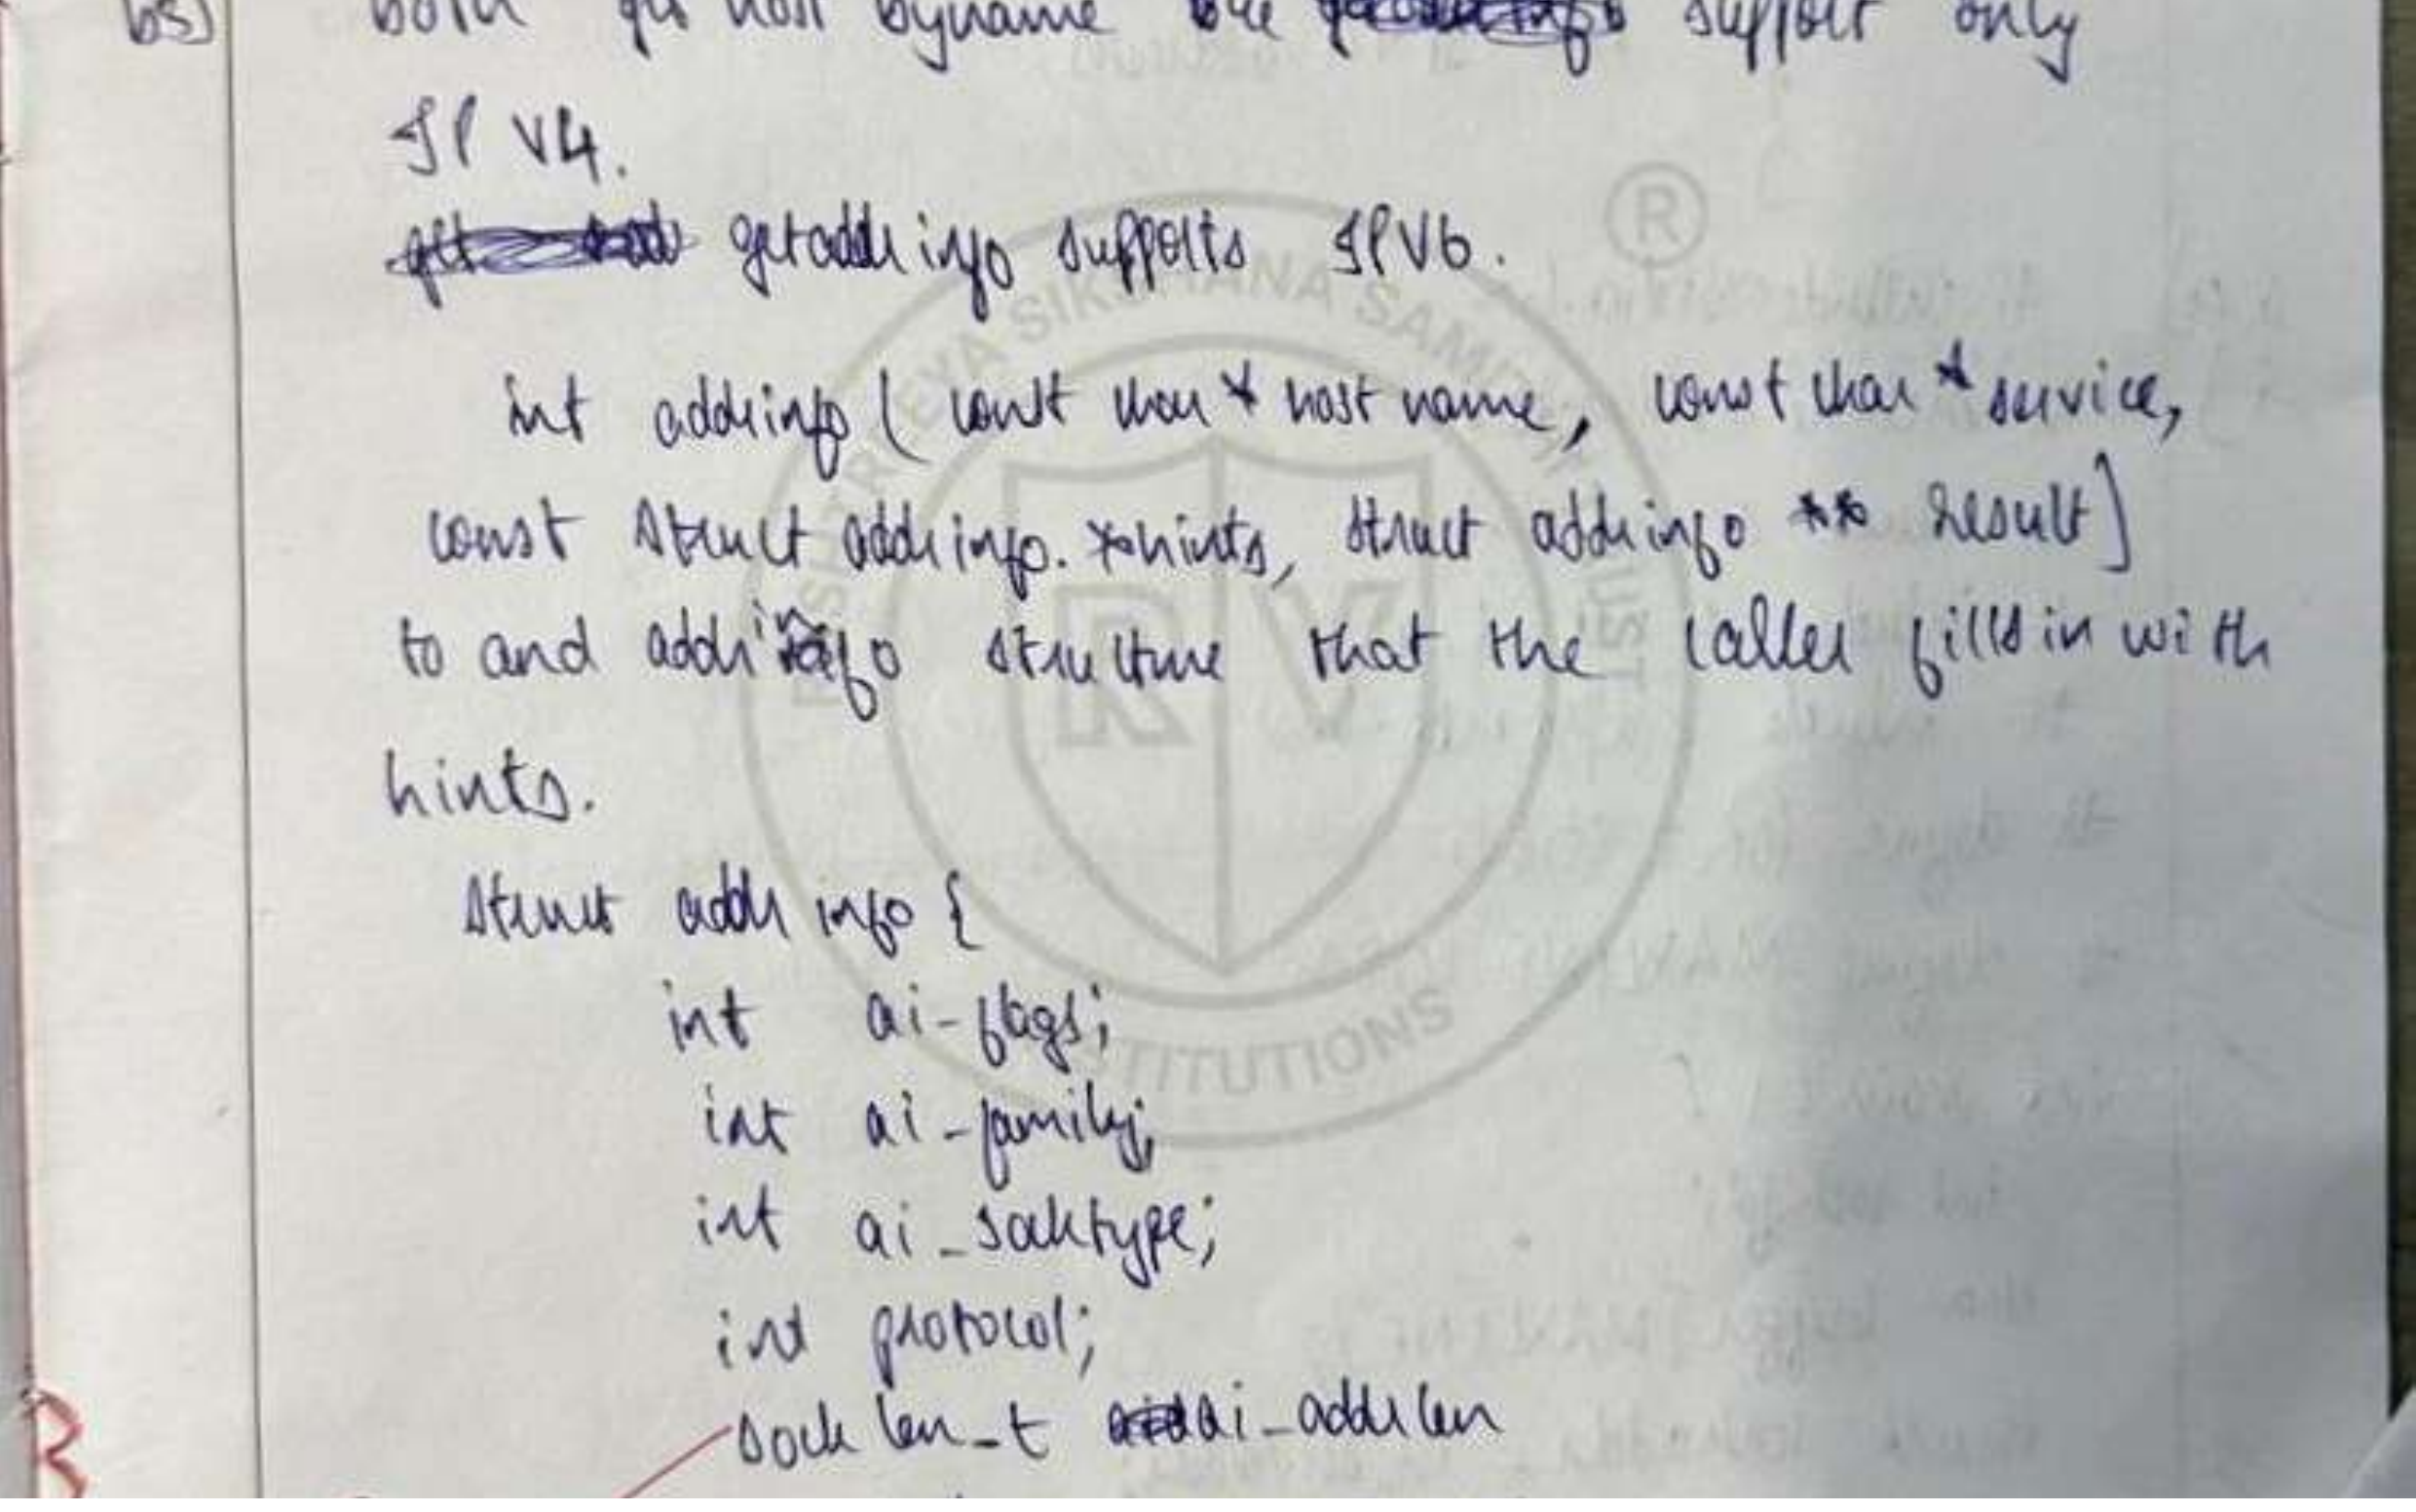 b5) both get host byname are support only
IP V4.
getaddrinfo supports IPV6.
int addrinfo ( const char * host name, const char * service,
const struct addrinfo. * hints, struct addrinfo ** result]
to and addrinfo structure that the caller fills in with
hints.
struct addr info {
int ai-flags;
int ai-family;
int ai_socktype;
int protocol;
sock len_t ai_addrlen
R
SIKSHANA SAMITHI TRUST
RV
INSTITUTIONS
®